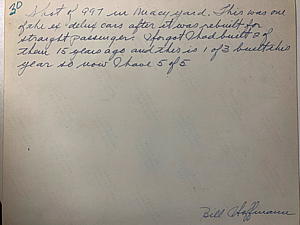 20
Shot of 997 in Macey yard. This was one
of the ex-delivery cars after it was rebuilt for
straight passenger. I forgot I had built 2 of
them 15 years ago and this is 1 of 3 built this
year so now I have 5 of 5
Bill Hoffmann